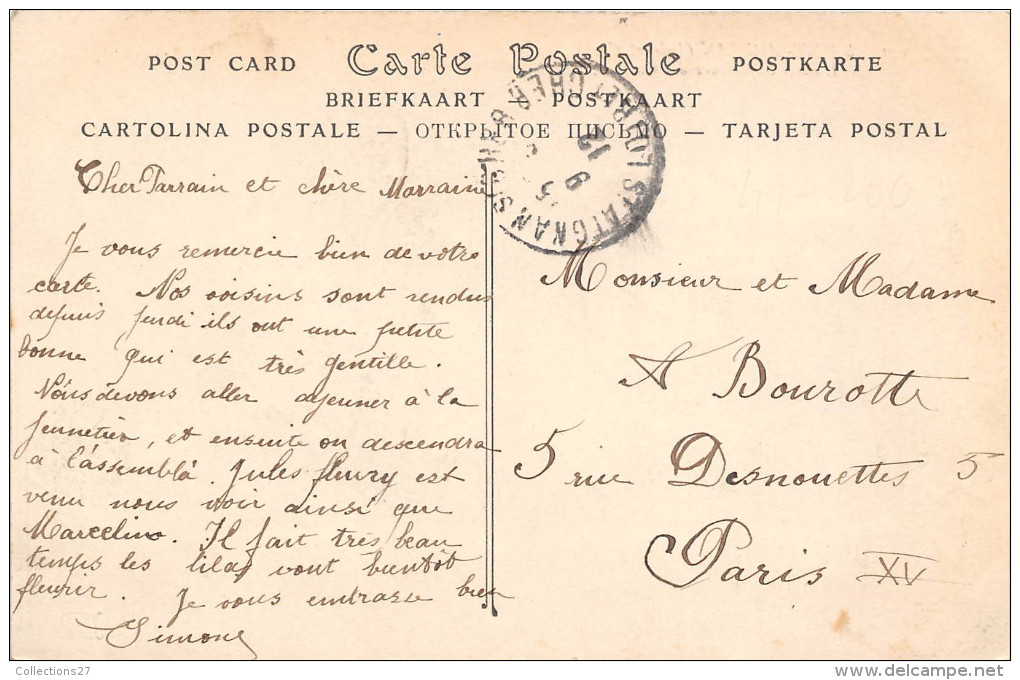 POST CARD Carte Postale POSTKARTE
BRIEFKAART — POSTKAART
CARTOLINA POSTALE — ОТКРЫТОЕ ПИСЬМО — TARJETA POSTAL
ST AIGNAN SUR CHER LOIR ET CHER
12
6
5
Cher Parrain et chère Marraine
Je vous remercie bien de votre
carte. Nos voisins sont rendus
depuis jeudi ils ont une petite
bonne qui est très gentille.
Nous devons aller dejeuner à la
et ensuite on descendra
à l'assemblé. Jules fleury est
venu nous voir ainsi que
Marceline. Il fait très beau
temps les lilas vont bientôt
fleurir. Je vous embrasse bien
Simone
Monsieur et Madame
A Bourotte
5 rue Desnouettes 5
Paris XV
Collections27
www.delcampe.net